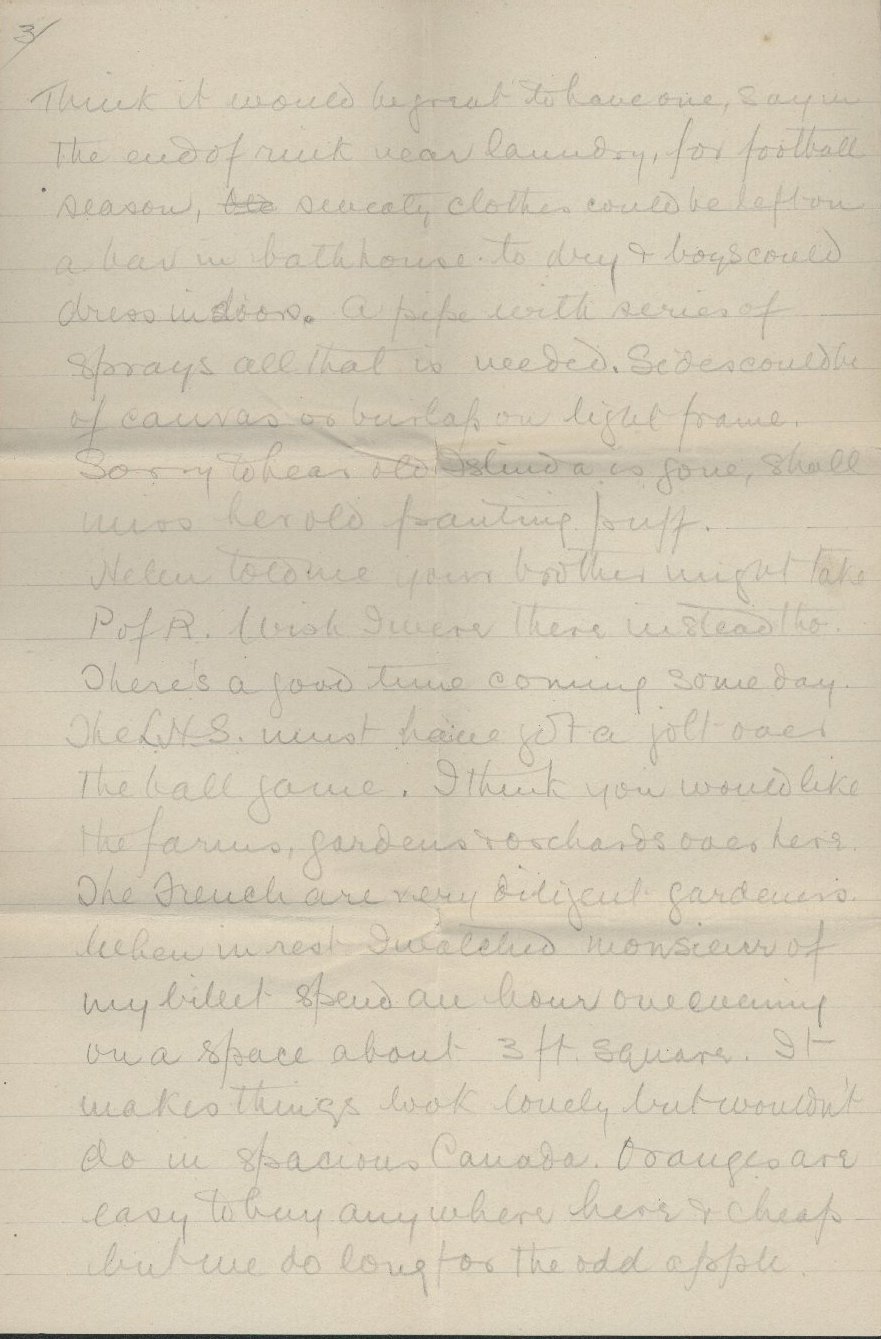 3/
Think it would be great to have one, say in
the end of rink near laundry, for football
season, sweaty clothes could be left on
a bar in bathhouse to dry & boys could
dress indoors. A pipe with series of
sprays all that is needed. Sides could be
of canvas or burlap on light frame.
Sorry to hear old is gone, shall
miss her old panting puff.
Helen told me your brother might take
P of R. Wish I were there instead tho.
There's a good time coming some day.
The L.H.S. must have got a jolt over
the ball game. I think you would like
the farms, gardens & orchards over here.
The French are very diligent gardeners.
When in rest I watched monsieur of
my billet spend an hour one evening
on a space about 3 ft. square. It
makes things look lovely but wouldn't
do in spacious Canada. Oranges are
easy to buy anywhere here & cheap
but we do long for the odd apple.